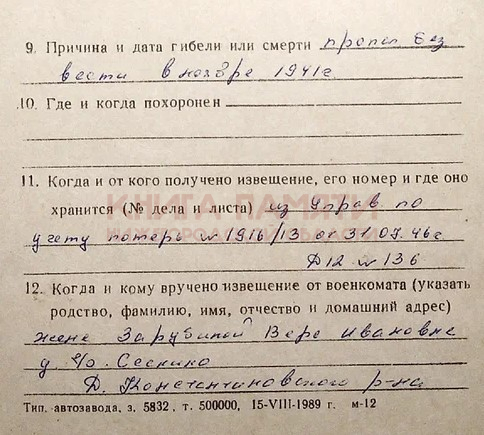 9. Причина и дата гибели или смерти пропал без
вести в ноябре 1941г.
10. Где и когда похоронен
11. Когда и от кого получено извещение, его номер и где оно
КНИГА ПАМЯТИ
хранится (№ дела и листа) из Управ. по
НИЖЕГОРОДСКОЙ ОБЛАСТИ
учету потерь № 1916/13 от 31.07.46г
Д12 № 136
12. Когда и кому вручено извещение от военкомата (указать
родство, фамилию, имя, отчество и домашний адрес)
жене Зарубиной Вере Ивановне
д.
Д. Константиновского р-на
Тип. автозавода, з. 5832, т. 500000, 15-VIII-1989 г. м-12